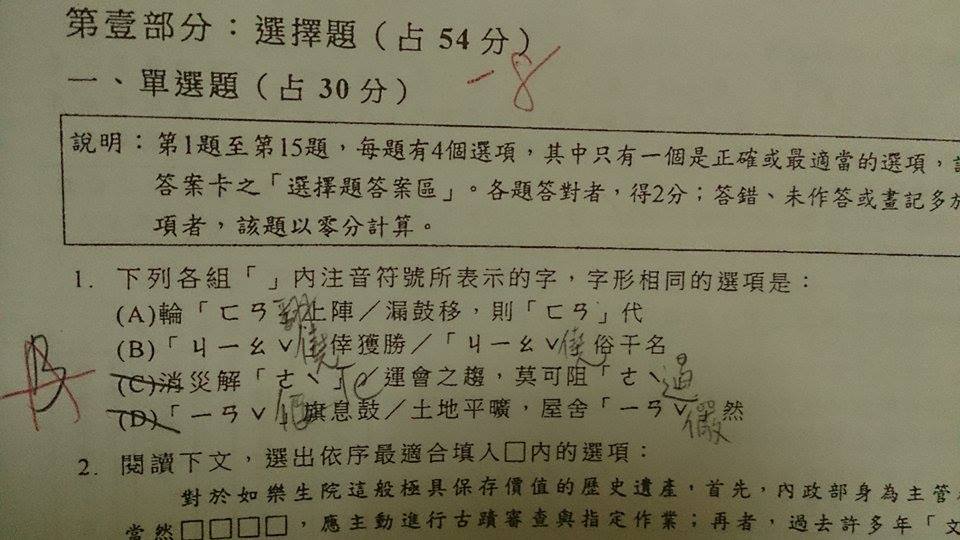 第壹部分：選擇題（占 54 分）
-8
一、單選題（占 30 分）
說明：第1題至第15題，每題有4個選項，其中只有一個是正確或最適當的選項，
答案卡之「選擇題答案區」。各題答對者，得2分；答錯、未作答或畫記多於
項者，該題以零分計算。
1. 下列各組「 」內注音符號所表示的字，字形相同的選項是：
(A)輪「ㄈㄢ 上陣／漏鼓移，則「ㄈㄢ」代
B (B)「ㄐㄧㄠˇ 僥 倖獲勝／「ㄐㄧㄠˇ 僥 俗干名
(C)消災解「ㄜˋ」厄／運會之趨，莫可阻「ㄜˋ 遏
(D)「ㄧㄢˇ 偃 旗息鼓／土地平曠，屋舍「ㄧㄢˇ 儼 然
2. 閱讀下文，選出依序最適合填入□內的選項：
對於如樂生院這般極具保存價值的歷史遺產，首先，內政部身為主管
當然□□□□，應主動進行古蹟審查與指定作業；再者，過去許多年「文